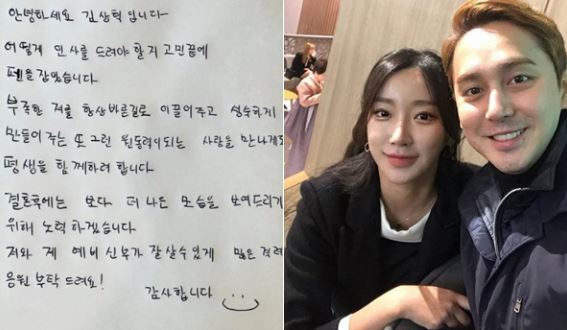 안녕하세요 김상혁 입니다
어떻게 인사를 드려야 할지 고민끝에
펜을 잡았습니다
부족한 저를 항상 바른길로 이끌어주고 성숙하게
만들어 주는 또 그런 원동력이되는 사람을 만나게되
평생을 함께하려 합니다
결혼후에는 보다 더 나은 모습을 보여드리기
위해 노력 하겠습니다
저와 제 예비신부가 잘 살수있게 많은 격려
응원 부탁 드려요!
감사합니다